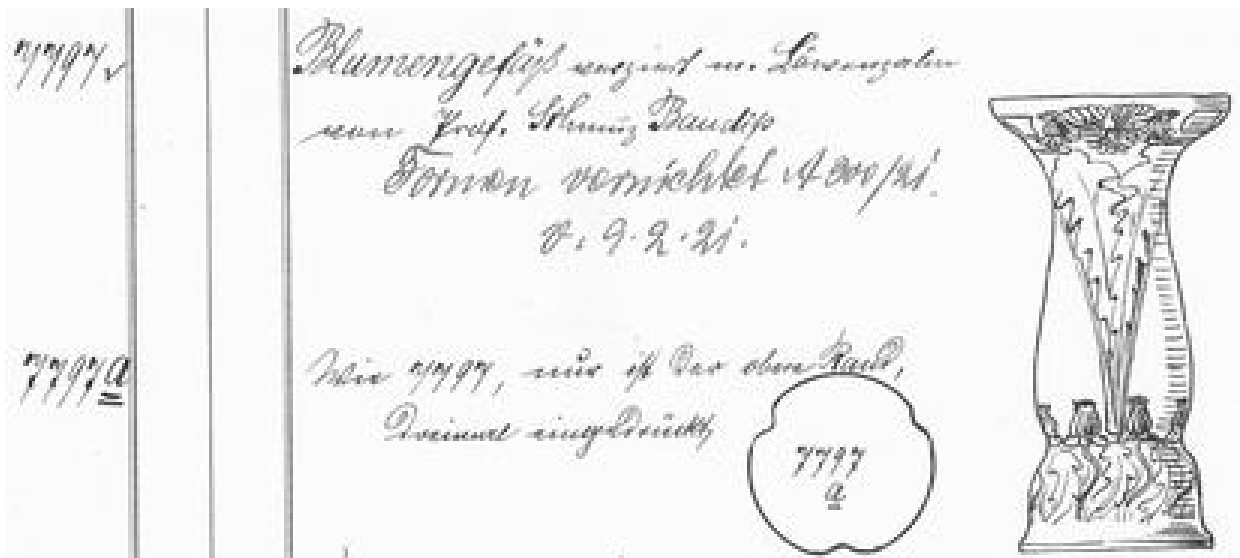 7797 Blumengefäß verziert m. Löwenzahn
von Prof. Schmuz Baudiß
Formen vernichtet A 300/21.
d. 9.2.21.
7797a Wie 7797, nur ist der obere Rand,
dreimal eingedrückt,
7797
a